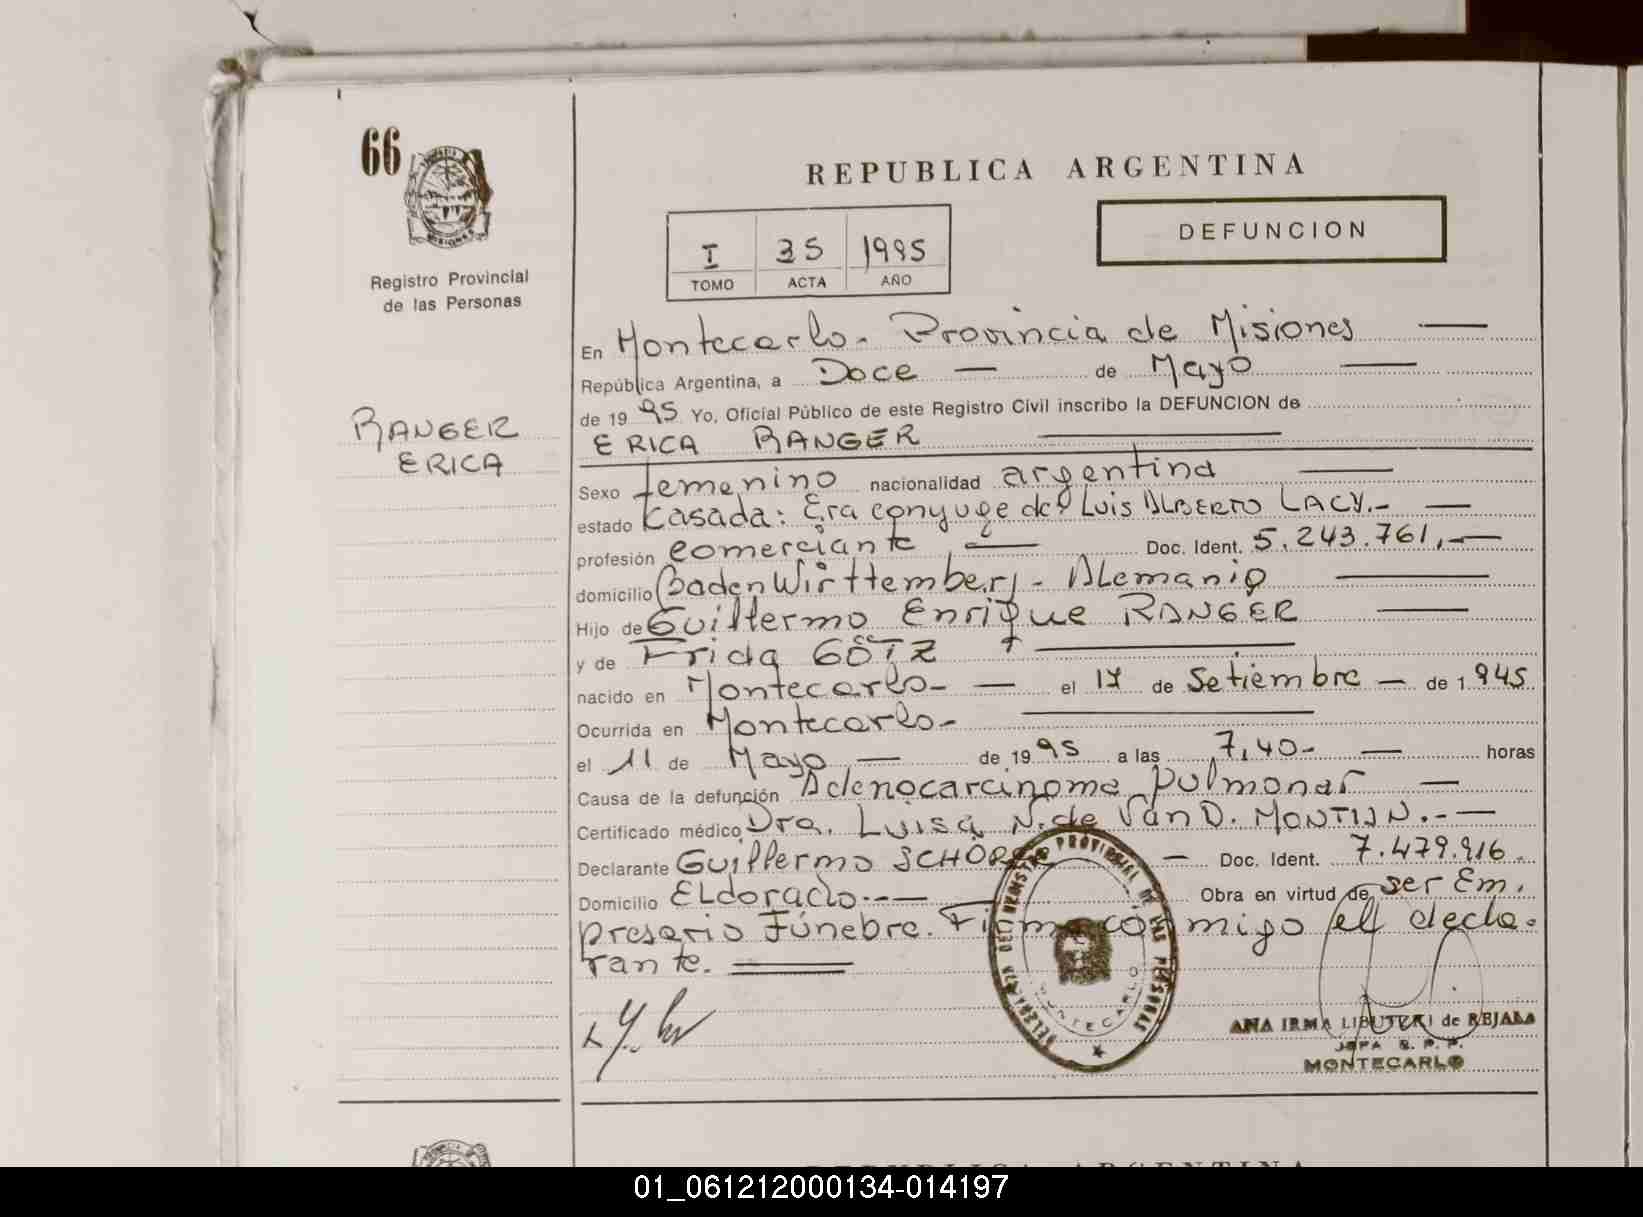 66
Registro Provincial
de las Personas
RANGER
ERICA
REPUBLICA ARGENTINA
DEFUNCION
I 35 1995
TOMO ACTA AÑO
En Montecarlo - Provincia de Misiones
República Argentina, a Doce de Mayo
de 1995 Yo, Oficial Público de este Registro Civil inscribo la DEFUNCION de
ERICA RANGER
Sexo femenino nacionalidad argentina
estado casada: Era conyuge de Luis ALBERTO LACY.-
profesión comerciante Doc. Ident. 5.243.761.-
domicilio Baden Württemberj - ALemania
Hijo de Guillermo Enrique RANGER
y de Frida GÖTZ
nacido en Montecarlo- el 17 de Setiembre de 1.945
Ocurrida en Montecarlo-
el 11 de Mayo de 1995 a las 7,40- horas
Causa de la defunción Adenocarcinoma pulmonar
Certificado médico Dra. Luisa N. de Van D. MONTIJN.-
Declarante Guillermo Doc. Ident. 7.479.916.
Domicilio ELdorado.-- Obra en virtud de ser Em.
presario Fúnebre. Firma conmigo el decla-
rante.
DELEGACION DEL REGISTRO PROVINCIAL DE LAS PERSONAS
MONTECARLO
ANA IRMA de REJALA
JEFA R. P. P.
MONTECARLO
REPUBLICA ARGENTINA
01_061212000134-014197